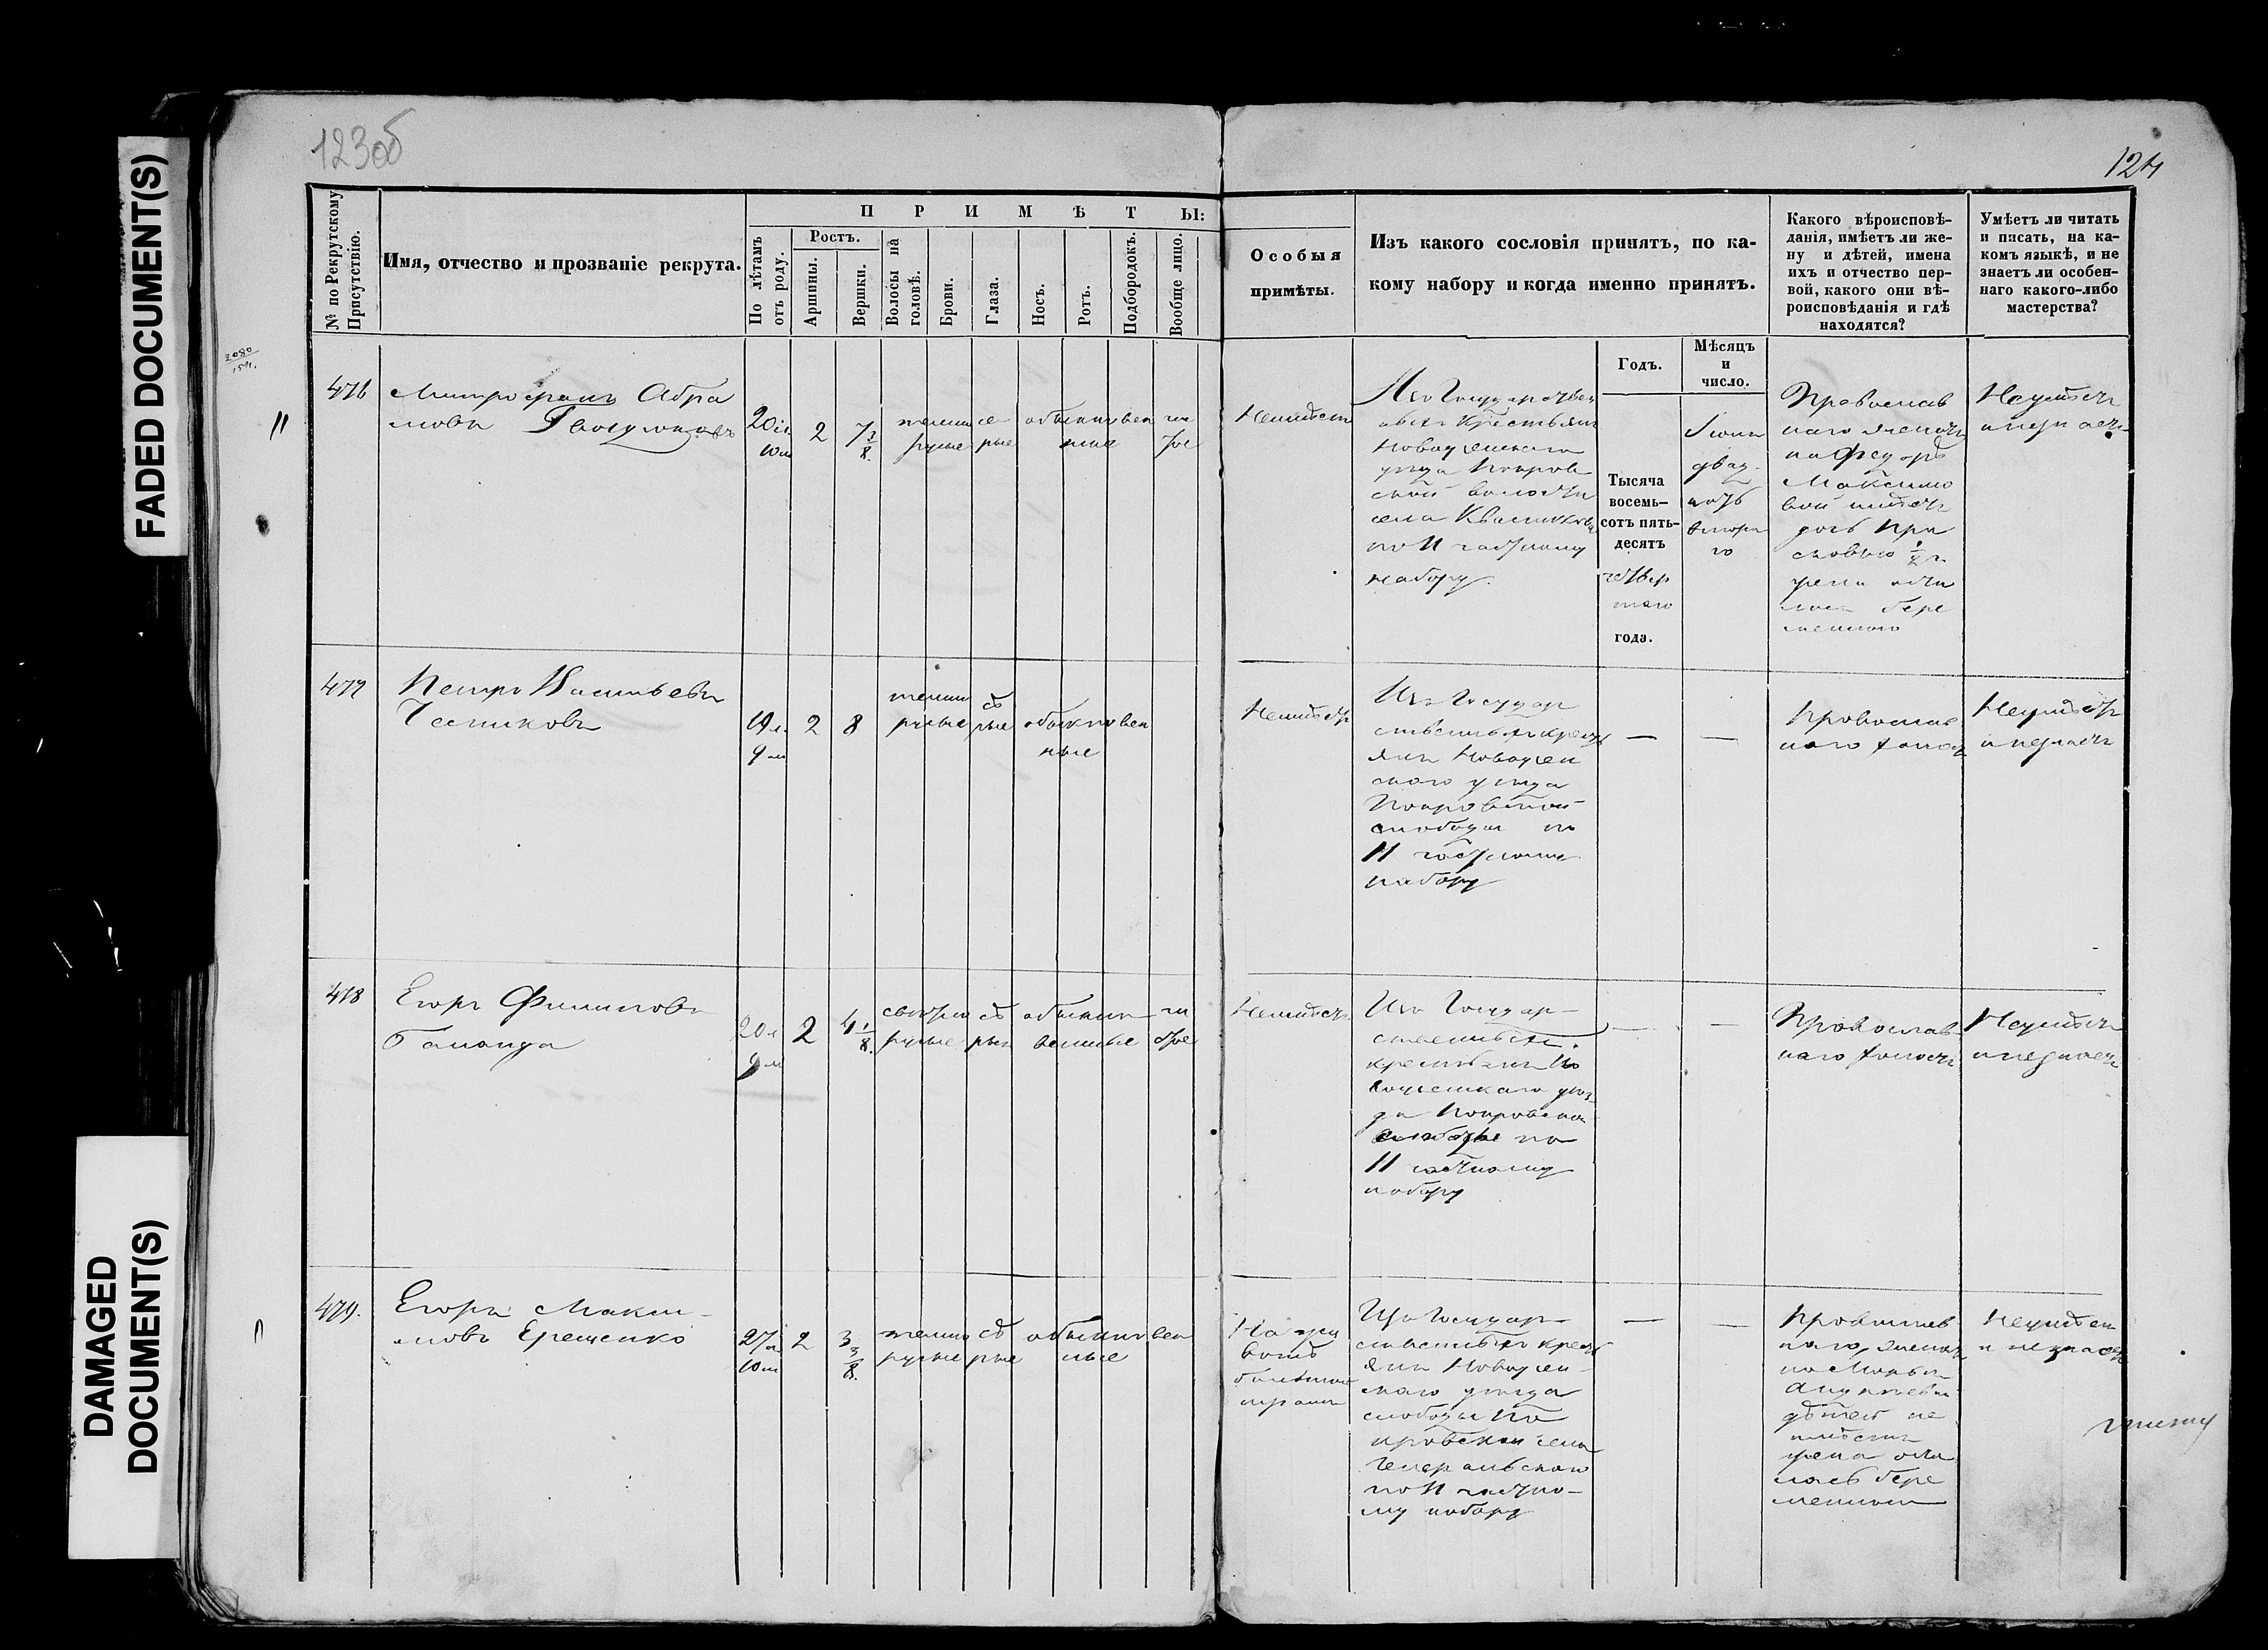 FADED DOCUMENT(S)
DAMAGED
DOCUMENT(S)
123об
124
№ по Рекрутскому
Присутствію.
Имя, отчество и прозваніе рекрута.
ПРИМѢТЫ:
По лѣтамъ
отъ роду.
Ростъ.
Аршины.
Вершки.
Волосы на
головѣ.
Брови.
Глаза.
Носъ.
Ротъ.
Подбородокъ.
Вообще лицо.
Особыя
примѣты.
Изъ какого сословія принятъ, по ка-
кому набору и когда именно принятъ.
Какого вѣроисповѣ-
данія, имѣетъ ли же-
ну и дѣтей, имена
ихъ и отчество пер-
вой, какого они вѣ-
роисповѣданія и гдѣ
находятся?
Умѣетъ ли читать
и писать, на ка-
комъ языкѣ, и не
знаетъ ли особен-
наго какого-либо
мастерства?
Годъ.
Мѣсяцъ
и
число.
476
Митрофанъ Абра
мовъ
20 л.
10 м
2
7 3/8
темно
русые
сѣ
рые
обыкновен
ные
чи
стое
Неимѣетъ
Изъ Государствен
ныхъ крестьянъ
Новоузенскаго
уѣзда Покров
ской волости
села Квасниковки
по 11 частному
набору.
Тысяча
восемь-
сотъ пять-
десятъ
четвер
таго
года.
Іюня
двад
цать
втора
го
Православ
наго женатъ
на Федорѣ
Максимо
вой имѣетъ
дочь Пра
сковью 1/2 г.
жена оста
лась бере
менною
Неумѣетъ
и незнаетъ
477
Петръ Васильевъ
Чесниковъ
19 л.
9 м
2
8
темно
русые
сѣ
рые
обыкновен
ные
Неимѣетъ
Изъ Государ
ственныхъ крест
янъ Новоузен
скаго уѣзда
Покровской
слободы по
11 частному
набору
—
—
Православ
наго холостъ
Неумѣетъ
и незнаетъ
478
Егоръ Филиповъ
20 л
9 м
2
4 1/8
свѣтло
русые
сѣ
рые
обыкно
венные
чи
стое
Неимѣетъ
Изъ Государ-
ственныхъ
крестьянъ Но
воузенскаго уѣз
да Покровской
слободы по
11 частному
набору
—
—
Православ
наго холостъ
Неумѣетъ
и незнаетъ
479.
Егоръ Макси-
мовъ Ерещенко
27 л
10 м
2
3 3/8
темно
русые
сѣ
рые
обыкновен
ные
На жи
вотѣ
Изъ Государ-
ственныхъ крест
янъ Новоузен-
скаго уѣзда
слободы По
кровской села
Генеральскаго
по 11 частно-
му набору
—
—
Православ
наго, женатъ
на
дѣтей не
имѣетъ
жена оста
лась бере
менною
Неумѣетъ
и незнаетъ